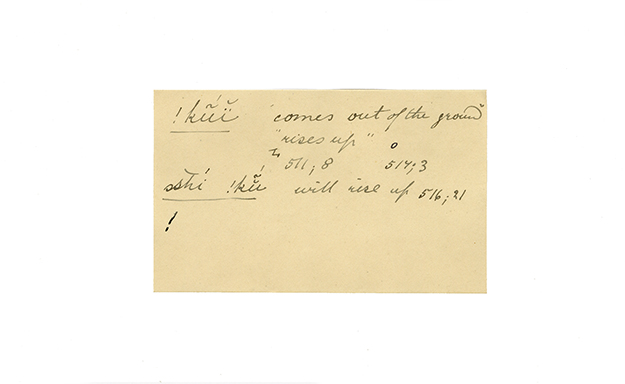 !kũĭ comes out of the ground
"rises up"
511; 8 517; 3
sshí !kũ̆ will rise up 516; 21
!